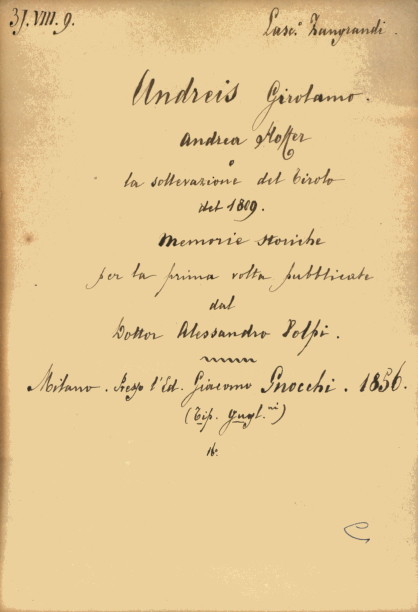 31.VIII.9.
Lasc.º Zangrandi.
Andreis Girolamo.
Andrea Hoffer
o
la sollevazione del Tirolo
del 1809.
Memorie storiche
per la prima volta pubblicate
dal
Dottor Alessandro Volpi.
Milano. Presso l'Ed. Giacomo Gnocchi. 1856.
(Tip. Gugl.ni)